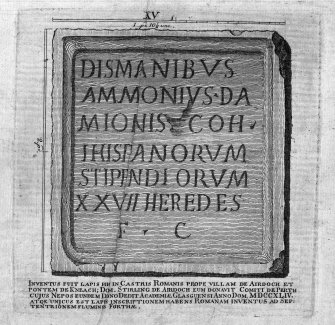 XV
DISMANIBVS
AMMONIVS·DA
MIONIS COH·
IHISPANORVM
STIPENDIORVM
XXVII HEREDES
F. C
INVENTUS FUIT LAPIS HIC IN CASTRIS ROMANIS PROPE VILLAM DE AIRDOCH ET
PONTEM DE KNEACH; DOM. STIRLING DE ARDOCH EUM DONAVIT COMITI DE PERTH
CUJUS NEPOS EUNDEM DONO DEDIT ACADEMIÆ GLASGUENSI ANNO DOM. MDCCXLIV.
ATQE UNICUS EST LAPIS INSCRIPTIONEM HABENS ROMANAM INVENTUS AD SEP-
TENTRIONEM FLUMINIS FORTHÆ.